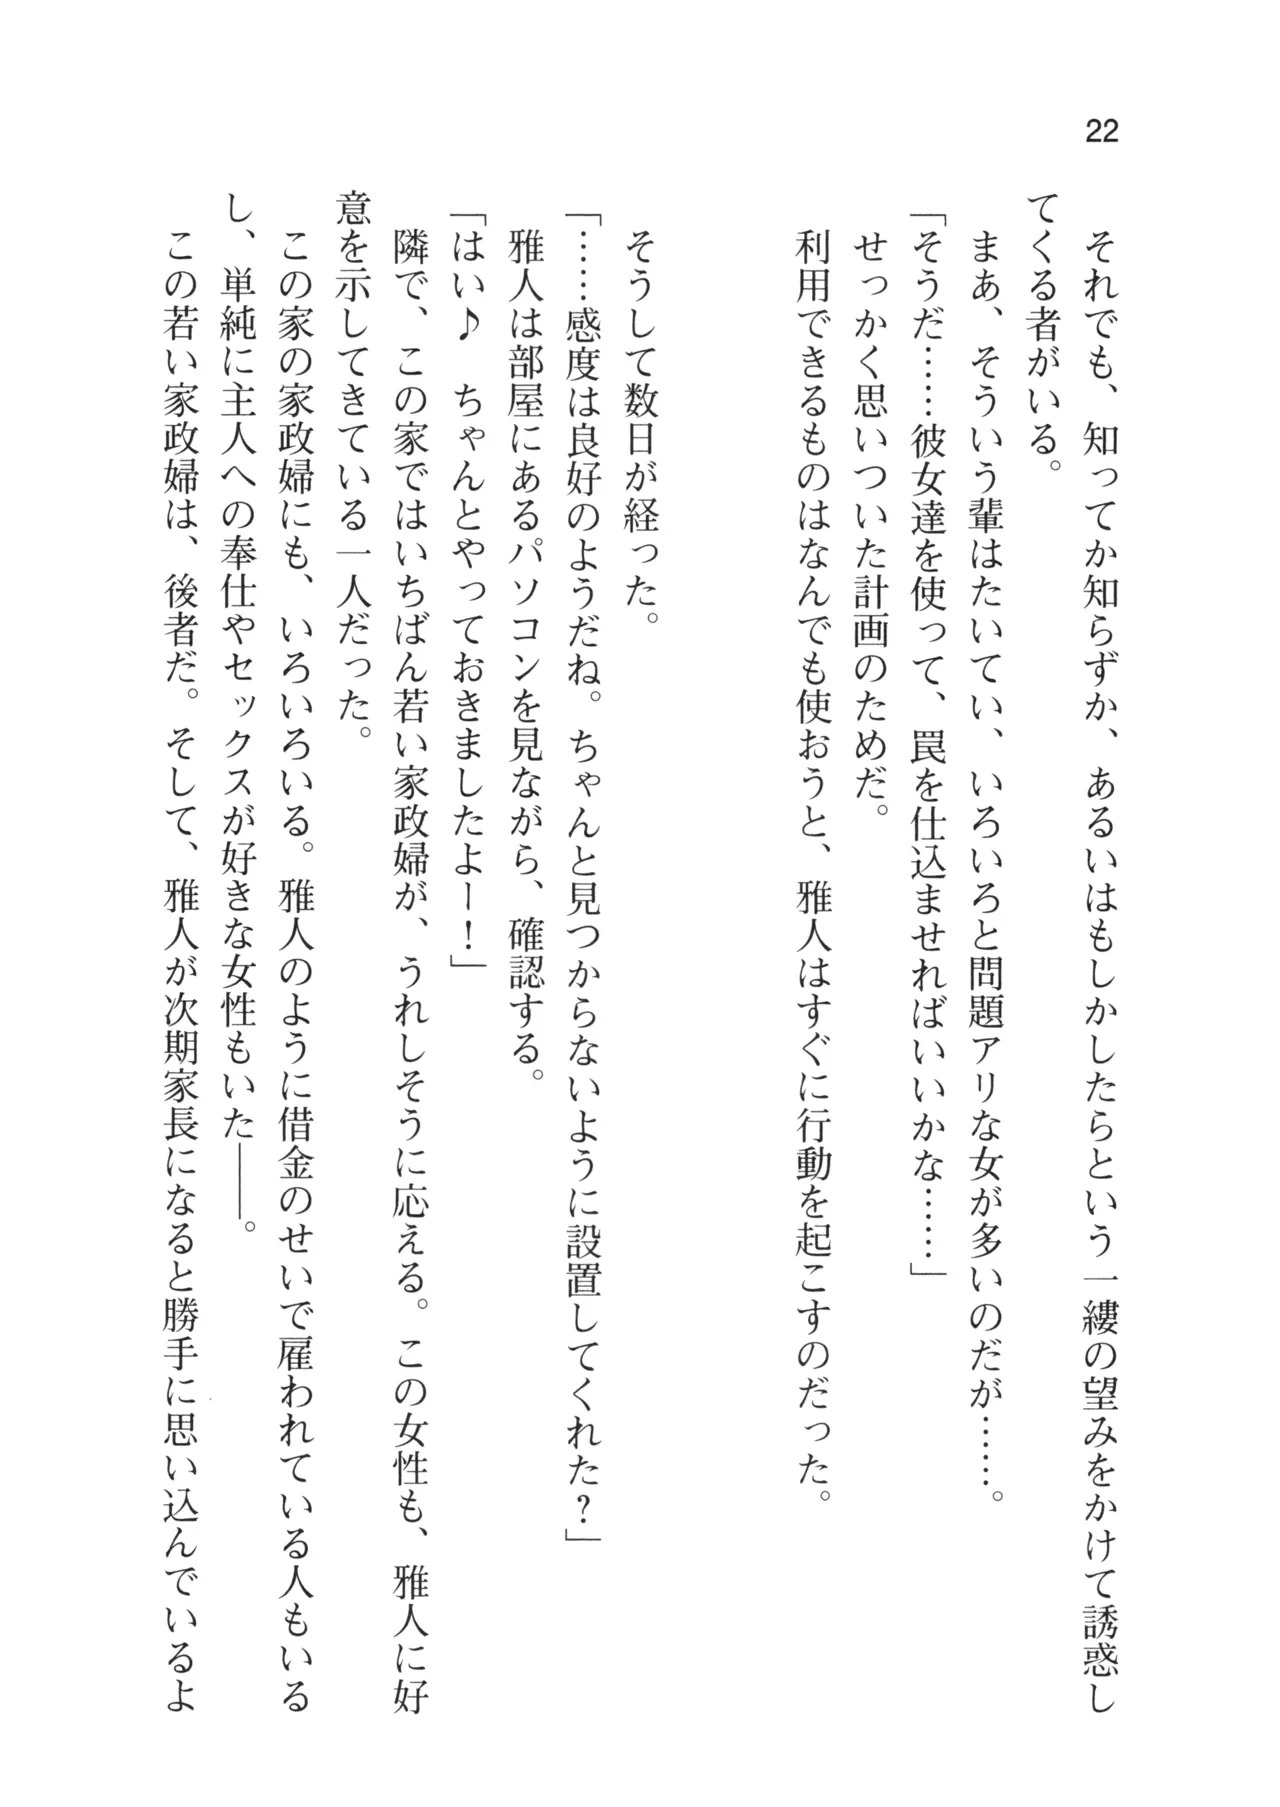 22
それでも、知ってか知らずか、あるいはもしかしたらという一縷の望みをかけて誘惑し
てくる者がいる。
まあ、そういう輩はたいてい、いろいろと問題アリな女が多いのだが……。
「そうだ……彼女達を使って、罠を仕込ませればいいかな……」
せっかく思いついた計画のためだ。
利用できるものはなんでも使おうと、雅人はすぐに行動を起こすのだった。
そうして数日が経った。
「……感度は良好のようだね。ちゃんと見つからないように設置してくれた？」
雅人は部屋にあるパソコンを見ながら、確認する。
「はい♪　ちゃんとやっておきましたよー！」
隣で、この家ではいちばん若い家政婦が、うれしそうに応える。この女性も、雅人に好
意を示してきている一人だった。
この家の家政婦にも、いろいろいる。雅人のように借金のせいで雇われている人もいる
し、単純に主人への奉仕やセックスが好きな女性もいた――。
この若い家政婦は、後者だ。そして、雅人が次期家長になると勝手に思い込んでいるよ